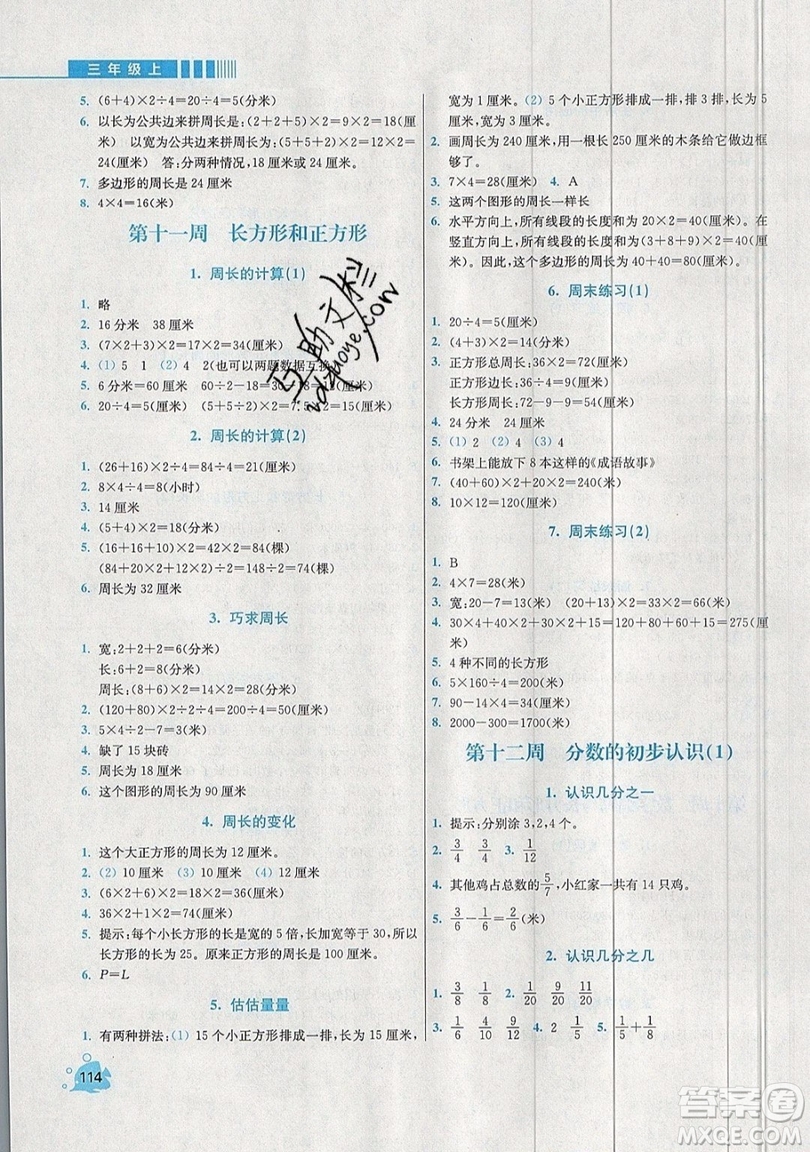 三年级上
5. (6+4)×2÷4=20÷4=5(分米)
6. 以长为公共边来拼周长:(5+2+2)×2=9×2=18(厘
米) 以宽为公共边来拼周长:(5+5+2)×2=12×2=
24(厘米) 答:分两种情况,18 厘米或 24 厘米。
7. 多边形的周长是 24 厘米
8. 4×4=16(米)
第十一周 长方形和正方形
1. 周长的计算(1)
1. 略
2. 16 分米 38 厘米
3. (7×2+3)×2=17×2=34(厘米)
4. (1) 5 1 (2) 4 2(也可以两题数据互换)
5. 6 分米=60 厘米 60÷2-18=30-18=
6. 20÷4=5(厘米) (5+5÷2)×2=7.5×2=15(厘米)
2. 周长的计算(2)
1. (26+16)×2÷4=84÷4=21(厘米)
2. 8×4÷4=8(小时)
3. 14 厘米
4. (5+4)×2=18(分米)
5. (16+16+10)×2=42×2=84(棵)
(84+20+42)×2÷2=148÷2=74(棵)
6. 周长为 32 厘米
3. 巧求周长
1. 宽:2+2+2=6(分米)
长:6+2=8(分米)
周长:(6+8)×2=14×2=28(分米)
2. (120+80)×2÷2÷4=200÷4=50(厘米)
3. 5×4÷2-7=3(米)
4. 缺了 15 块砖
5. 周长为 18 厘米
6. 这个图形的周长为 90 厘米
4. 周长的变化
1. 这个大正方形的周长为 12 厘米。
2. (2) 10 厘米 (3) 10 厘米 (4) 12 厘米
3. (6×2+6)×2=18×2=36(厘米)
4. 36×2+1×2=74(厘米)
5. 提示:每个小长方形的长是宽的 5 倍,长加宽等于 30,所以
长方形的长为 25。原来正方形的周长是 100 厘米。
6. P=L
5. 估估量量
1. 有两种拼法:(1) 15 个小正方形排成一排,长为 15 厘米,
114
宽为 1 厘米。(2) 5 个小正方形排成一排,排 3 排,长为 5
厘米,宽为 3 厘米。
2. 画周长为 240 厘米,用一根长 250 厘米的木条给它做边框
够了。
3. 7×4=28(厘米) 4. A
5. 这两个图形的周长一样长
6. 水平方向上,所有线段的长度和为 20×2=40(厘米)。在
竖直方向上,所有线段的长度和为(3+8+9)×2=40(厘
米)。因此,这个多边形的周长为 40+40=80(厘米)。
6. 周末练习(1)
1. 20÷4=5(厘米)
2. 4×2=8(厘米)
3. 正方形总周长:36×2=72(厘米)
正方形边长:36÷4=9(厘米)
长方形周长:72-9-9=54(厘米)
4. 24 分米 24 厘米
5. (1) 2 (2) 4 (3) 4
6. 书架上能放下 8 本这样的《成语故事》
7. (40+60)×2×2=200×2=400(厘米)
8. 10×12=120(厘米)
7. 周末练习(2)
1. B
2. 4×7=28(米)
3. 宽:20-7=13(米) (20+13)×2=66(米)
4. 30×4+40×2+20×2+15×2+5=275(厘
米)
5. 4 种不同的长方形
6. 5×160÷4=200(米)
7. 90-14×4=34(厘米)
8. 2000-300=1700(米)
第十二周 分数的初步认识(1)
1. 认识几分之一
1. 提示:分别涂 3,2,4 个。
2. 3/4 3/4 3. 1/2
4. 其他鸡占总数的5/7,小红家一共有 14 只鸡。
5. 3/6-1/6=2/6(米)
2. 认识几分之几
1. 3/8 1/8 2. 1/20 9/20 11/20
3. 1/6 4/10 4. 2 1/5 5. 1/5+1/8